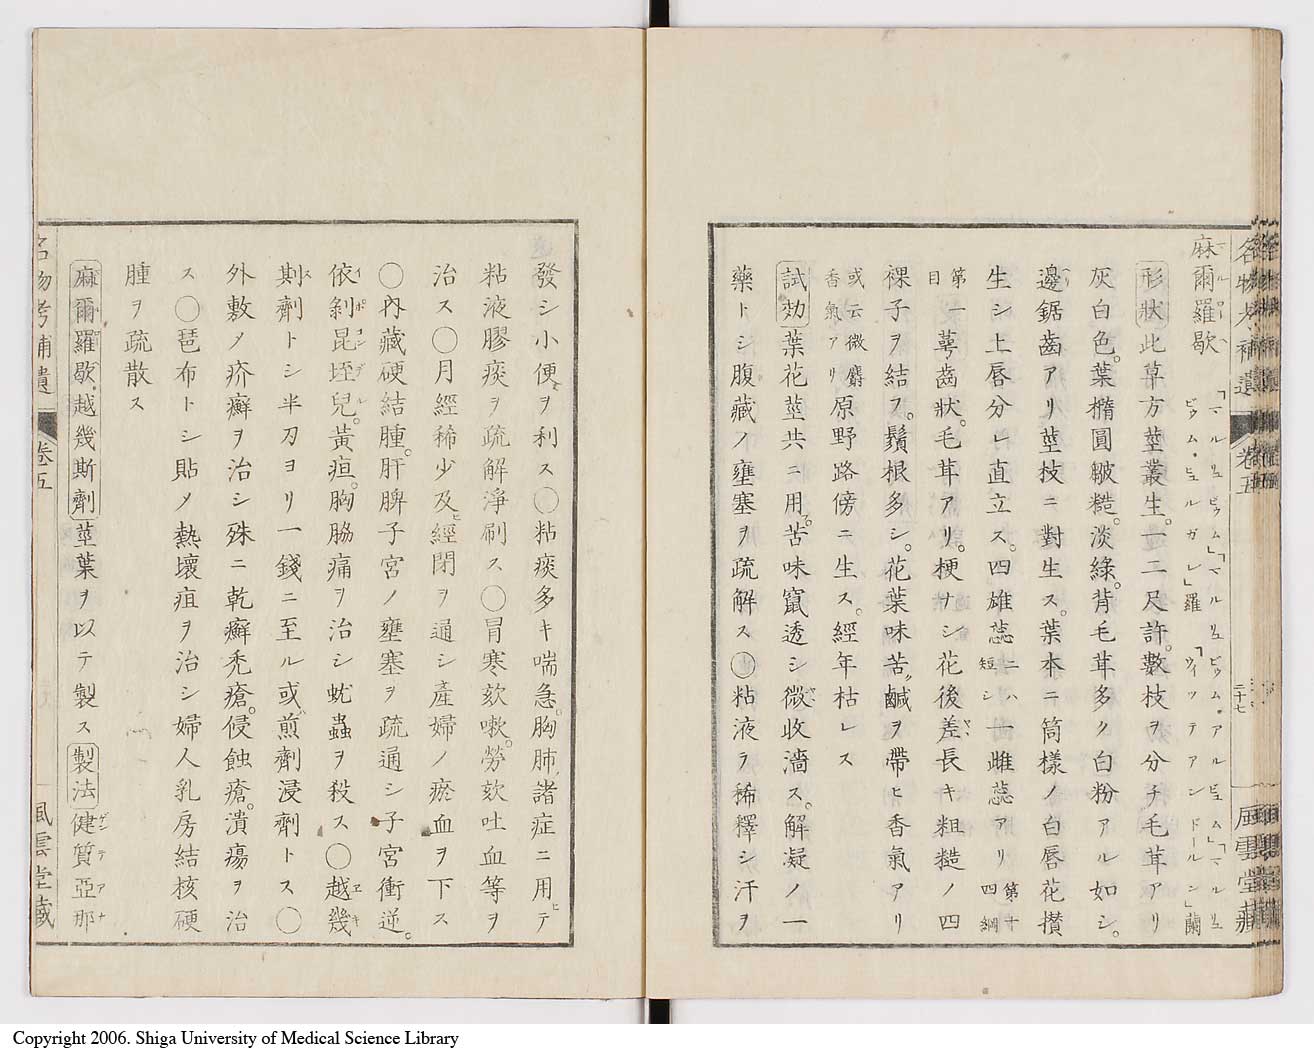 名物考補遺 卷五 二十七 風雲堂藏
麻爾羅歇
「マルリュビウム」「マルリュビウム・アルビュム」「マルリュ
ビウム・ヒュルガレ」羅「ウイッテアンドールン」蘭
形狀此草方莖叢生。一二尺許。數枝ヲ分チ毛茸アリ
灰白色。葉橢圓皺糙。淡綠。背毛茸多ク白粉アル如シ。
邊鋸齒アリ莖枝ニ對生ス。葉本ニ筒樣ノ白唇花攅
生シ上唇分レ直立ス。四雄蕊二ハ短シ一雌蕊アリ第十四綱
第一目萼齒狀。毛茸アリ。梗ナシ花後差長キ粗糙ノ四
裸子ヲ結フ。鬚根多シ。花葉味苦鹹ヲ帶ヒ香氣アリ
或云微麝香氣アリ原野路傍ニ生ス。經年枯レス
試効葉花莖共ニ用。苦味竄透シ微收濇ス。解凝ノ一
藥トシ腹藏ノ壅塞ヲ疏解ス〇粘液ヲ稀釋シ汗ヲ
發シ小便ヲ利ス〇粘痰多キ喘急。胸肺諸症ニ用テ
粘液膠痰ヲ疏解淨刷ス〇冒寒欬嗽。勞欬吐血等ヲ
治ス〇月經稀少及經閉ヲ通シ產婦ノ瘀血ヲ下ス
〇內藏硬結腫。肝脾子宮ノ壅塞ヲ疏通シ子宮衝逆。
依剝昆垤兒。黃疸。胸脇痛ヲ治シ蚘蟲ヲ殺ス〇越幾
斯劑トシ半刃ヨリ一錢ニ至ル或煎劑浸劑トス〇
外敷ノ疥癬ヲ治シ殊ニ乾癬禿瘡。侵蝕瘡。潰瘍ヲ治
ス〇琶布トシ貼メ熱壞疽ヲ治シ婦人乳房結核硬
腫ヲ疏散ス
麻爾羅歇越幾斯劑莖葉ヲ以テ製ス製法健質亞那
名物考補遺 卷五 風雲堂藏
Copyright 2006. Shiga University of Medical Science Library